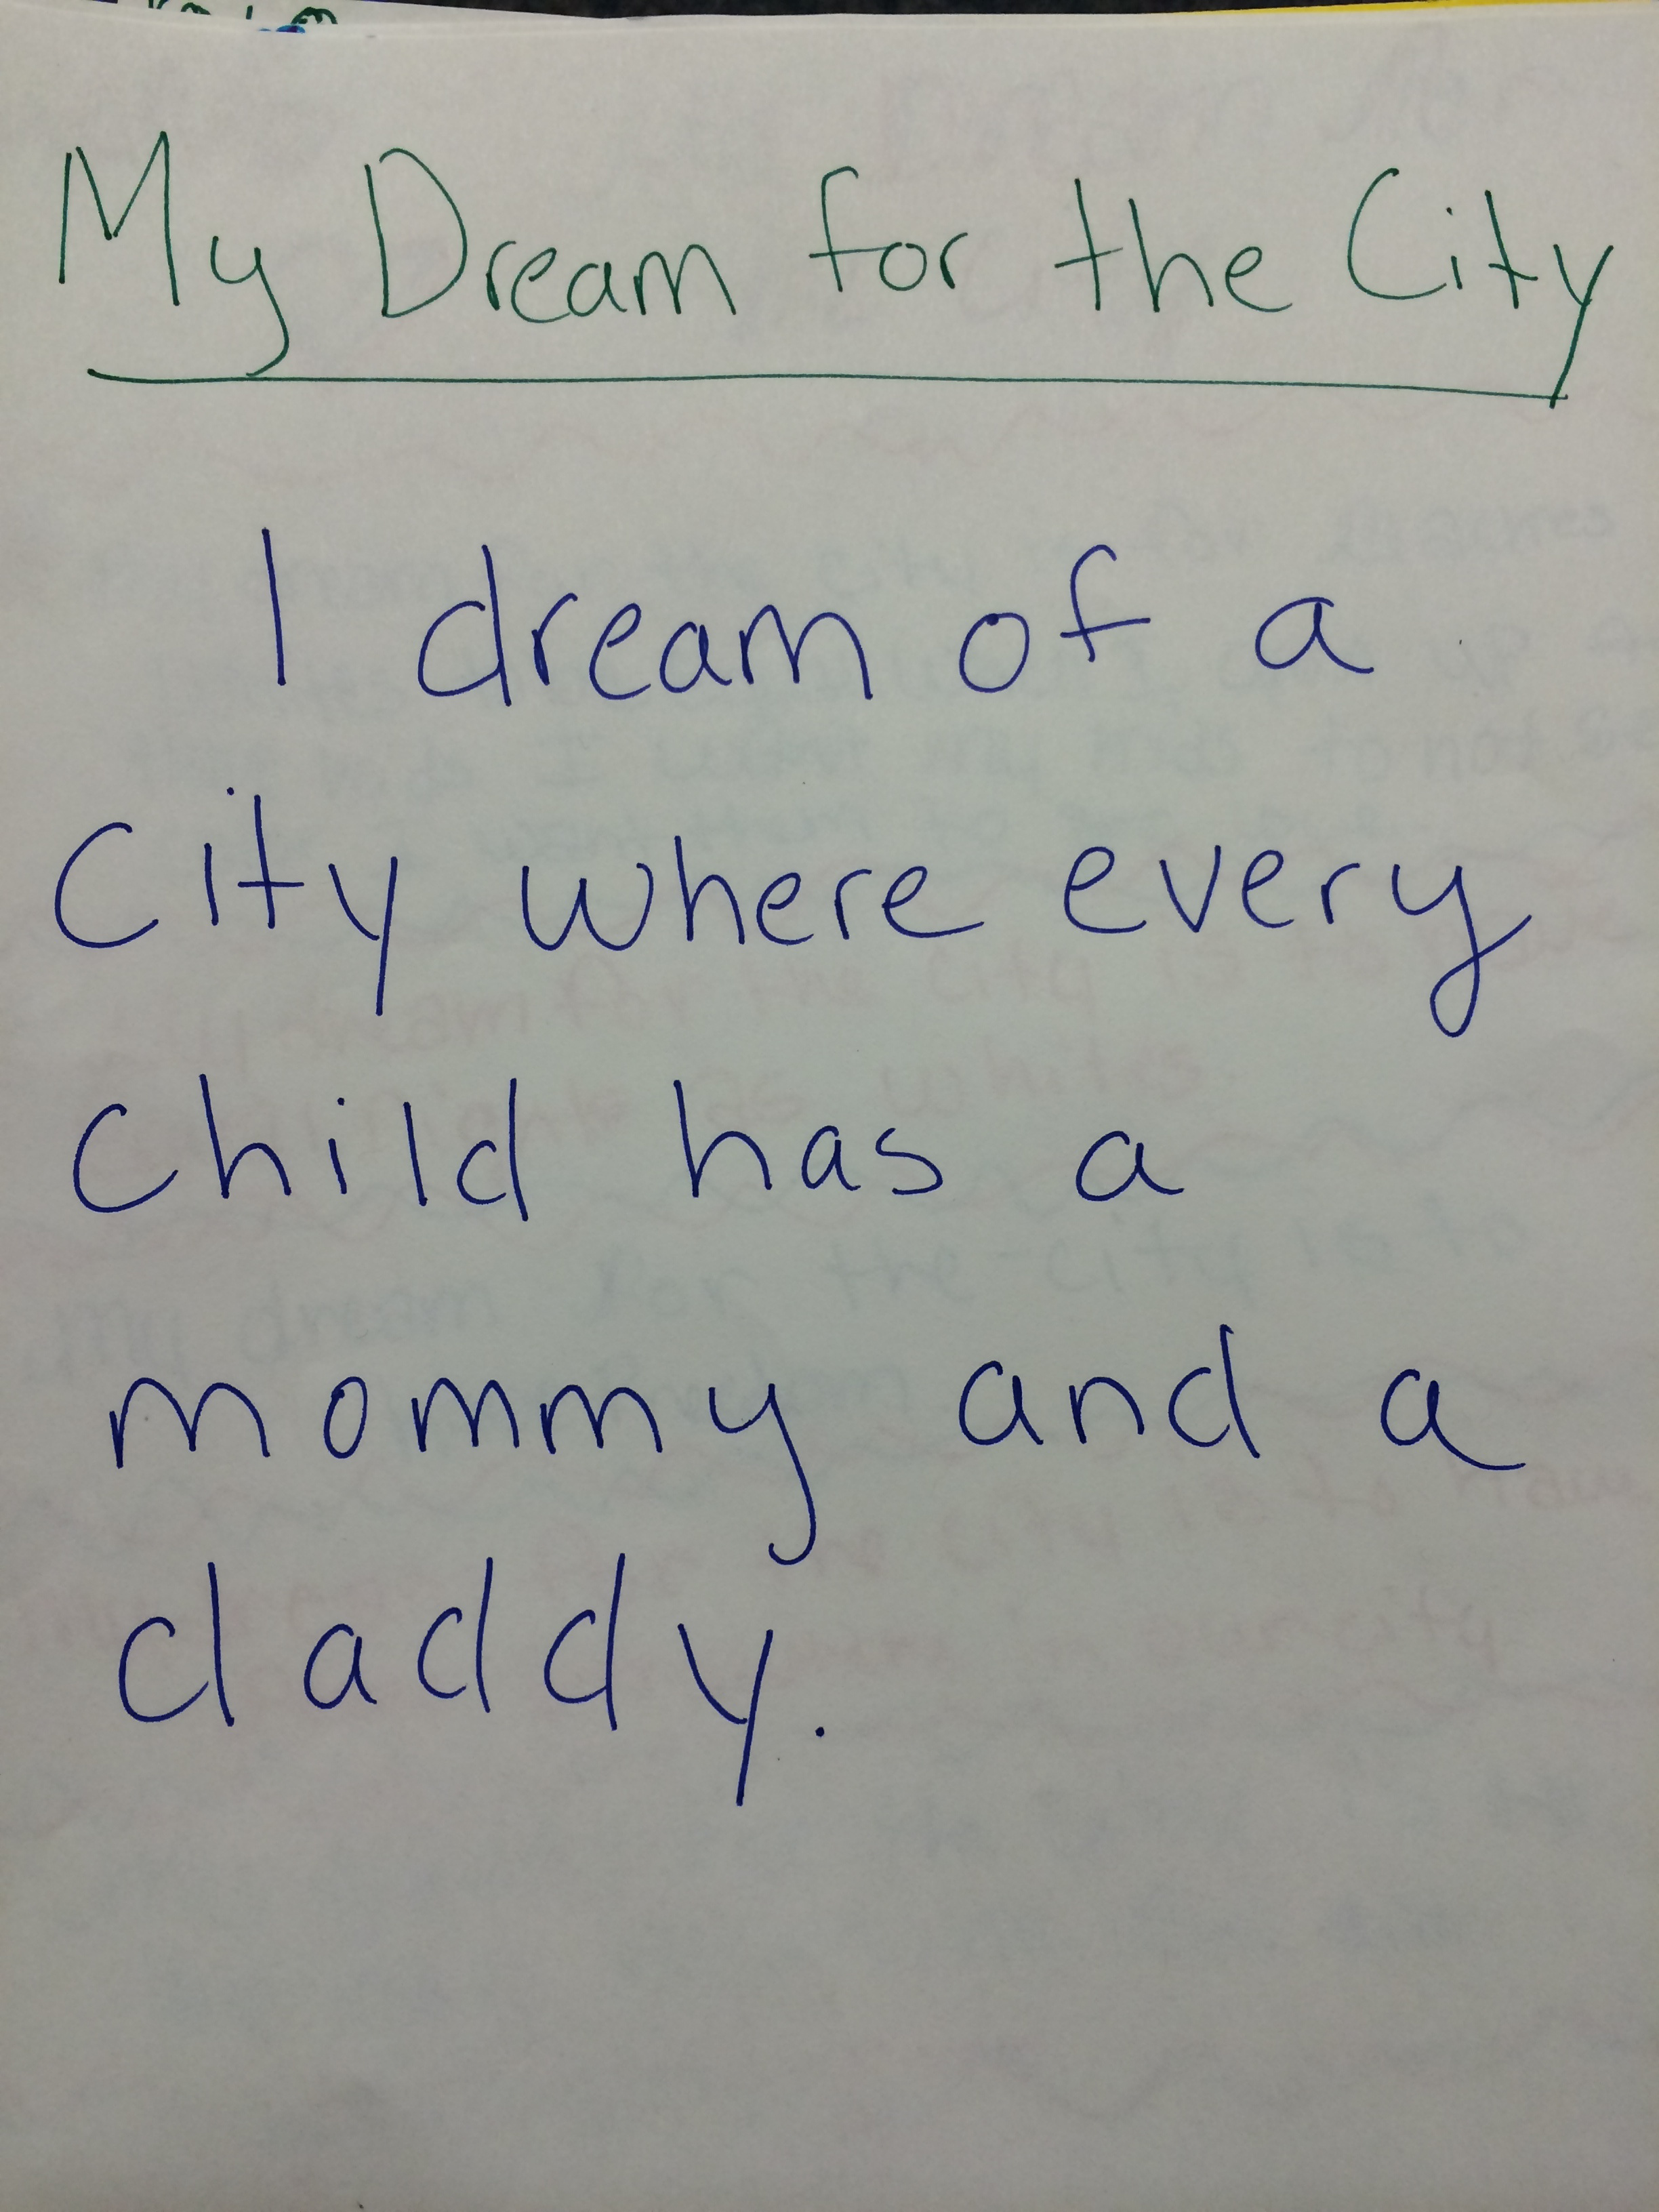 My Dream for the City
I dream of a
city where every
child has a
mommy and a
daddy.